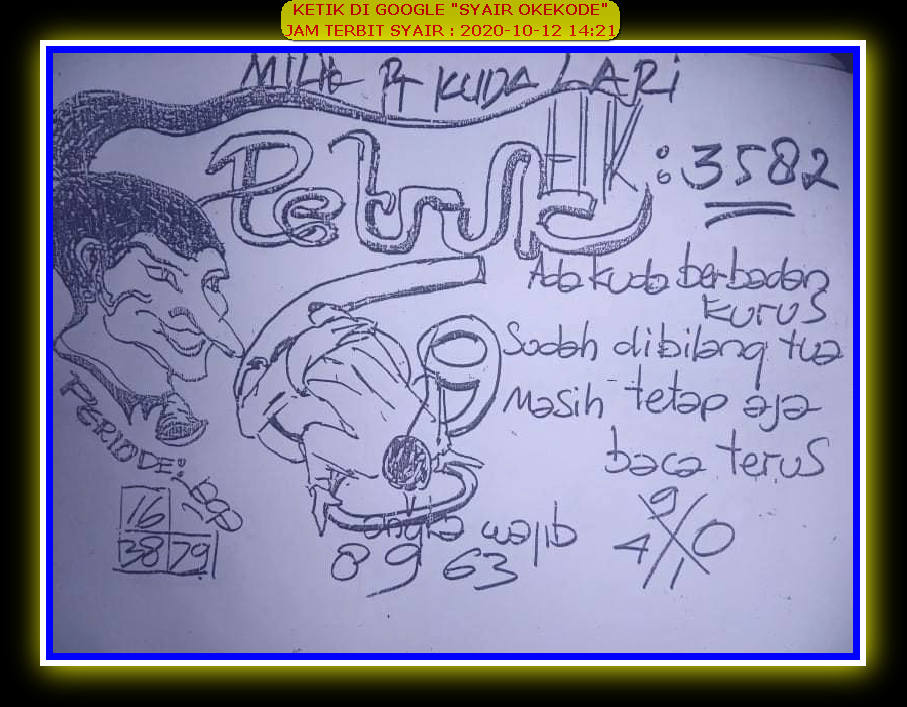 KETIK DI GOOGLE "SYAIR OKEKODE"
JAM TERBIT SYAIR : 2020-10-12 14:21
MILIK PT KUDA LARI
Petruk HK : 3582
Ada kuda berbadan
kurus
Sudah dibilang tua
masih tetap aja
baca terus
PERIODE:
16
38 79
angka wajib
8 9 63
9
4 0
1